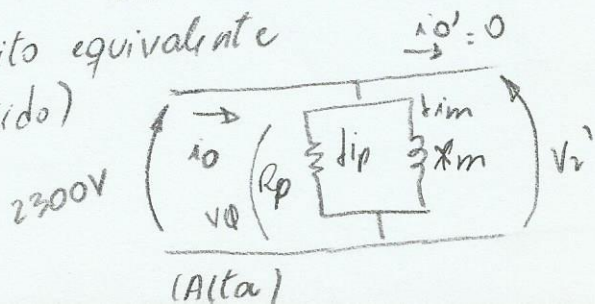 ito equivalente
ido)
io' = 0
io
2300V
VØ
Rp
ip
im
Xm
V2'
(Alta)